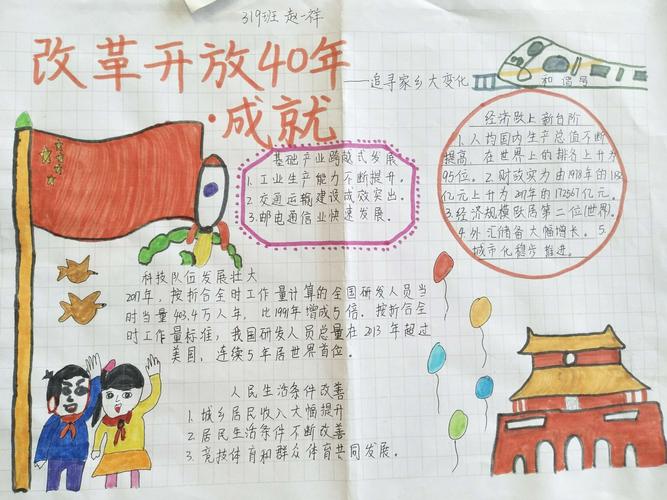 319班 赵一祥
改革开放40年
·成就
——追寻家乡大变化
和谐号
基础产业跨越式发展
1.工业生产能力不断提升。
2.交通运输建设成效突出。
3.邮电通信业快速发展。
经济跃上新台阶
1.人均国内生产总值不断
提高,在世界上的排名上升为
95位。2.财政实力由1978年的1132
亿元上升为2017年的172567亿元。
3.经济规模跃居第二位(世界)。
4.外汇储备大幅增长。5.
城市化稳步推进。
科技队伍发展壮大
2017年,按折合全时工作量计算的全国研发人员当
时当量403.4万人年,比1991年增成5倍。按折合全
时工作量标准,我国研发人员总量在2013年超过
美国,连续5年居世界首位。
人民生活条件改善
1.城乡居民收入大幅提升
2.居民生活条件不断改善
3.竞技体育和群众体育共同发展。